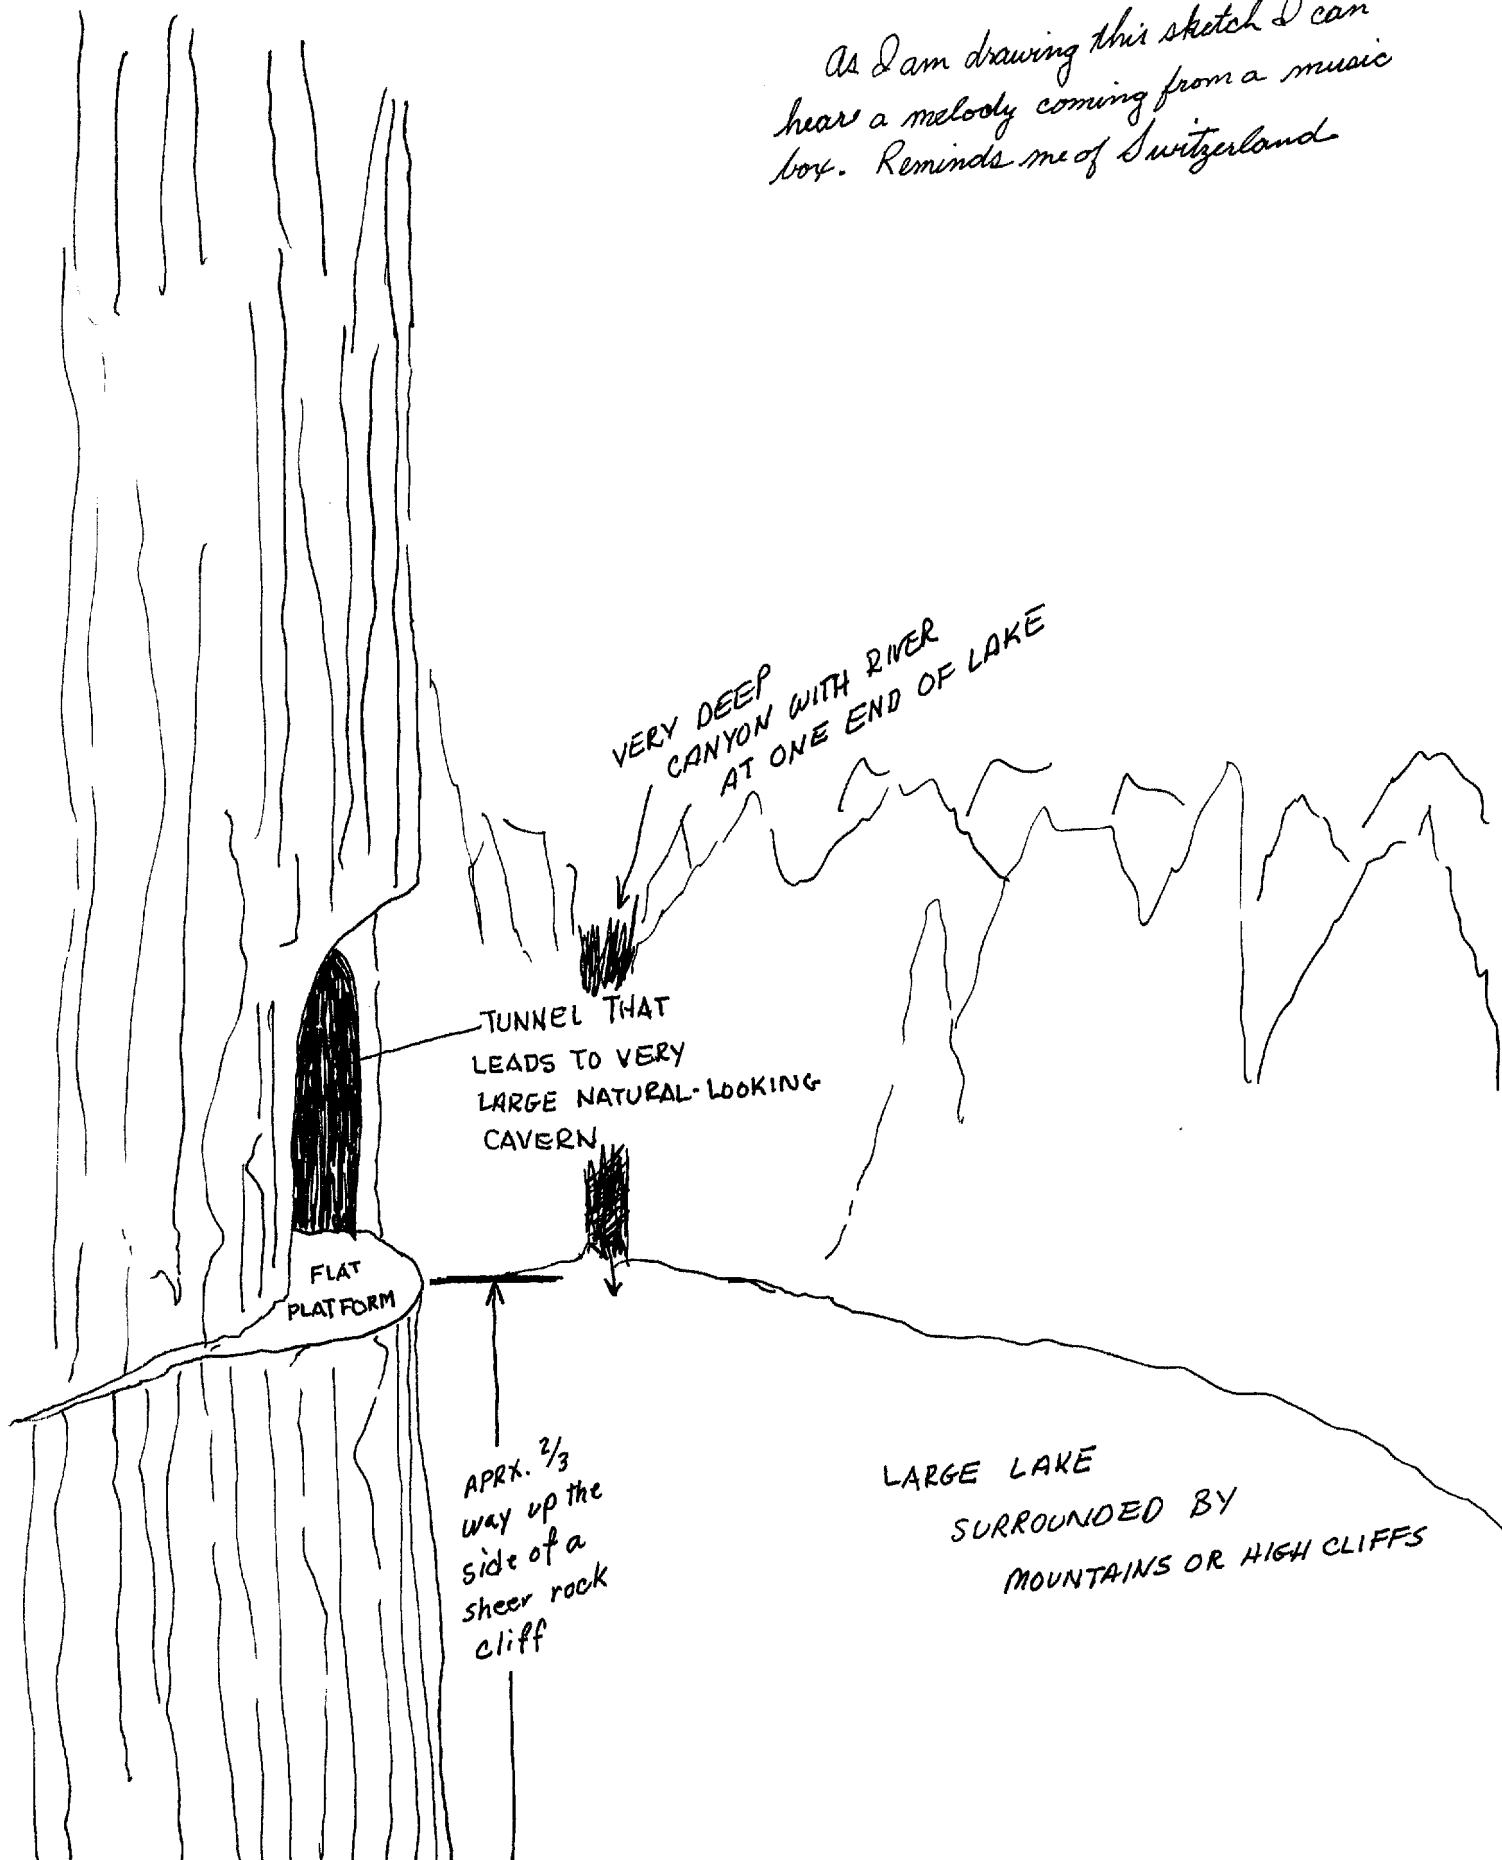 As I am drawing this sketch I can
hear a melody coming from a music
box. Reminds me of Switzerland
VERY DEEP
CANYON WITH RIVER
AT ONE END OF LAKE
TUNNEL THAT
LEADS TO VERY
LARGE NATURAL-LOOKING
CAVERN
FLAT
PLATFORM
APRX. 2/3
way up the
side of a
sheer rock
cliff
LARGE LAKE
SURROUNDED BY
MOUNTAINS OR HIGH CLIFFS